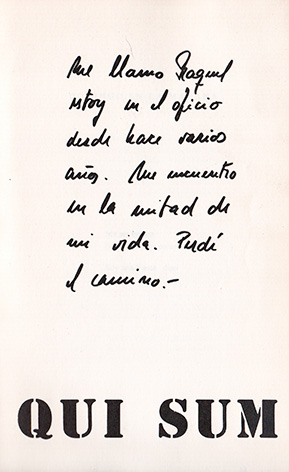 Me llamo Raquel
estoy en el oficio
desde hace varios
años. Me encuentro
en la mitad de
mi vida. Perdí
el camino.-
QUI SUM